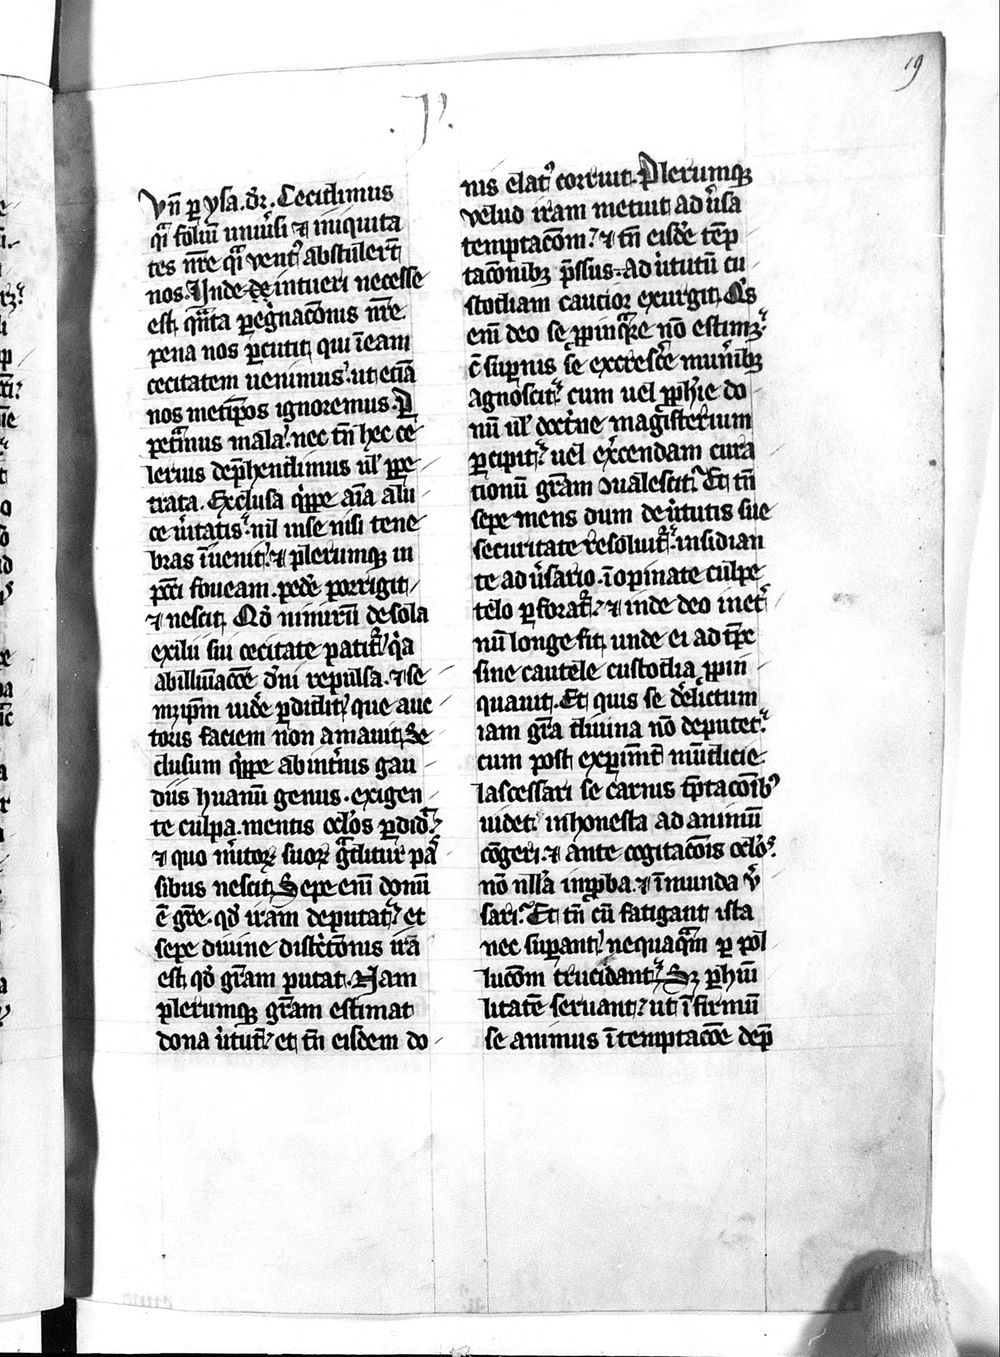 19
.J.
Vn̄ ꝑ ysa. dr̄. Cecidimus
qͣi foliū uniūsi ⁊ iniquita
tes nr̄e qͣi ventꝰ abstulert̄
nos. Unde de intueri necesse
est qͣnta peḡnacōnis nr̄e
pena nos ꝑcutit, qui ī eam
cecitatem uenimus. ut etiā
nos metip̄os ignoremus. P
petͣmus mala. nec tn̄ hec ce
lerius dep̄hendimus ul̓ ꝑpe
trata. Exclusa qͥppe aīa a lu
ce ūitatis. nil in se nisi tene
bras īuenit. ⁊ plerumqꝫ in
pcc̄i foueam. pedē porrigit,
⁊ nescit, Qd̓ nimirū de sola
exilii sui cecitate patitͬ, qͥa
ab illūiacōe dn̄i repulsa. ⁊ se
metip̄m uidē perdidit, que auc
toris faciem non amauit, Se
clusum qͥppe ab intn̄is gau
diis humanū genus. exigen
te culpa. mentis ocl̓os ꝑdid̓.
⁊ quo m̄itoꝝ suoꝝ gͣditur pas
sibus nescit, Sepe enī donū
ē gr̄e. qd̓ iram deputatͬ. et
sepe diuine districcōnis irā
est, qd̓ gr̄am putat. Nam
plerumqꝫ gr̄am estimat
dona ūtutū. et tn̄ eisdem do
nis elatꝰ corruit. Plerumqꝫ
velud iram metuit adūsa
temptacōem. ⁊ tn̄ eisdē temp
tacōnibꝫ p̄ssus. ad ūtutū cu
stodiam cautior exurgit, Qis
enī deo se ꝓpinqͣre nō estimꝫ.
cū supnis se excrescē munibꝫ
agnoscit. cum uel ꝓphīe do
nū ul̓ doctͥne magisterium
ꝑcipit. uel ex̓cendam cura
tionū gr̄am ↄualescit. Et tn̄
sepe mens dum de ūtutis sue
securitate resoluitͬ. insidian
te adūsario. īopinate culpe
telo ꝑforatͬ. ⁊ inde deo inet
nū longe fit, unde ei ad tp̄e
sine cautele custodia ꝓpin
quauit. Et quis se derelictum
iam gr̄a diuina nō deputet.
cum post expimtū mūdicie.
lacessari se carnis tp̄tacōibꝰ
uidet, inhonesta ad animū
cōgeri. ⁊ ante cogitacōis ocl̓os.
nō nll̓a inꝓba. ⁊ īmunda v̄
sari. Et tn̄ cū fatigant ista
nec supant, nequaqͣm ꝑ pol
lucōm trucidant. Sꝫ ꝑ hūi
litatē seruant. ut īfirmū
se animus ī temptacōe dep̄